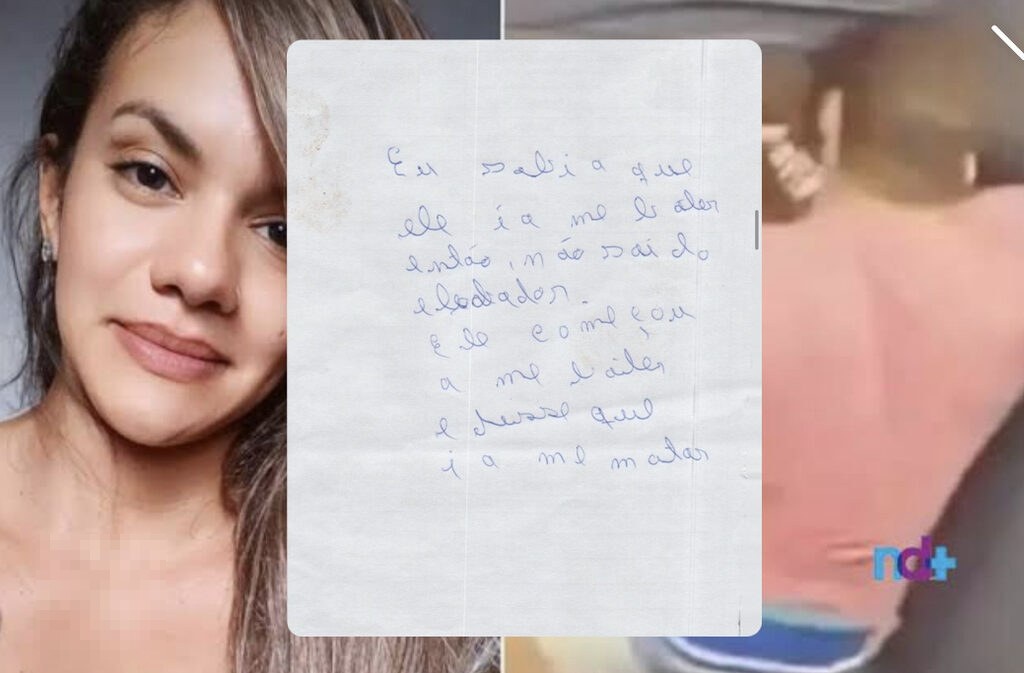 Eu sabia que
ele ia me bater
então, não sai do
elevador.
Ele começou
a me bater
e disse que
ia me matar
nd+